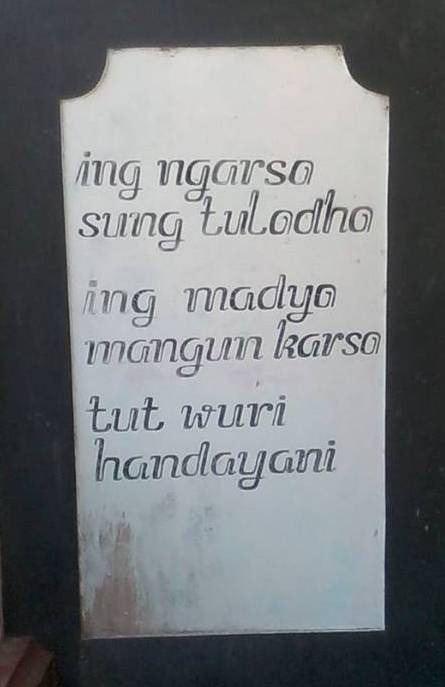 ing ngarso
sung tulodho
ing madyo
mangun karso
tut wuri
handayani